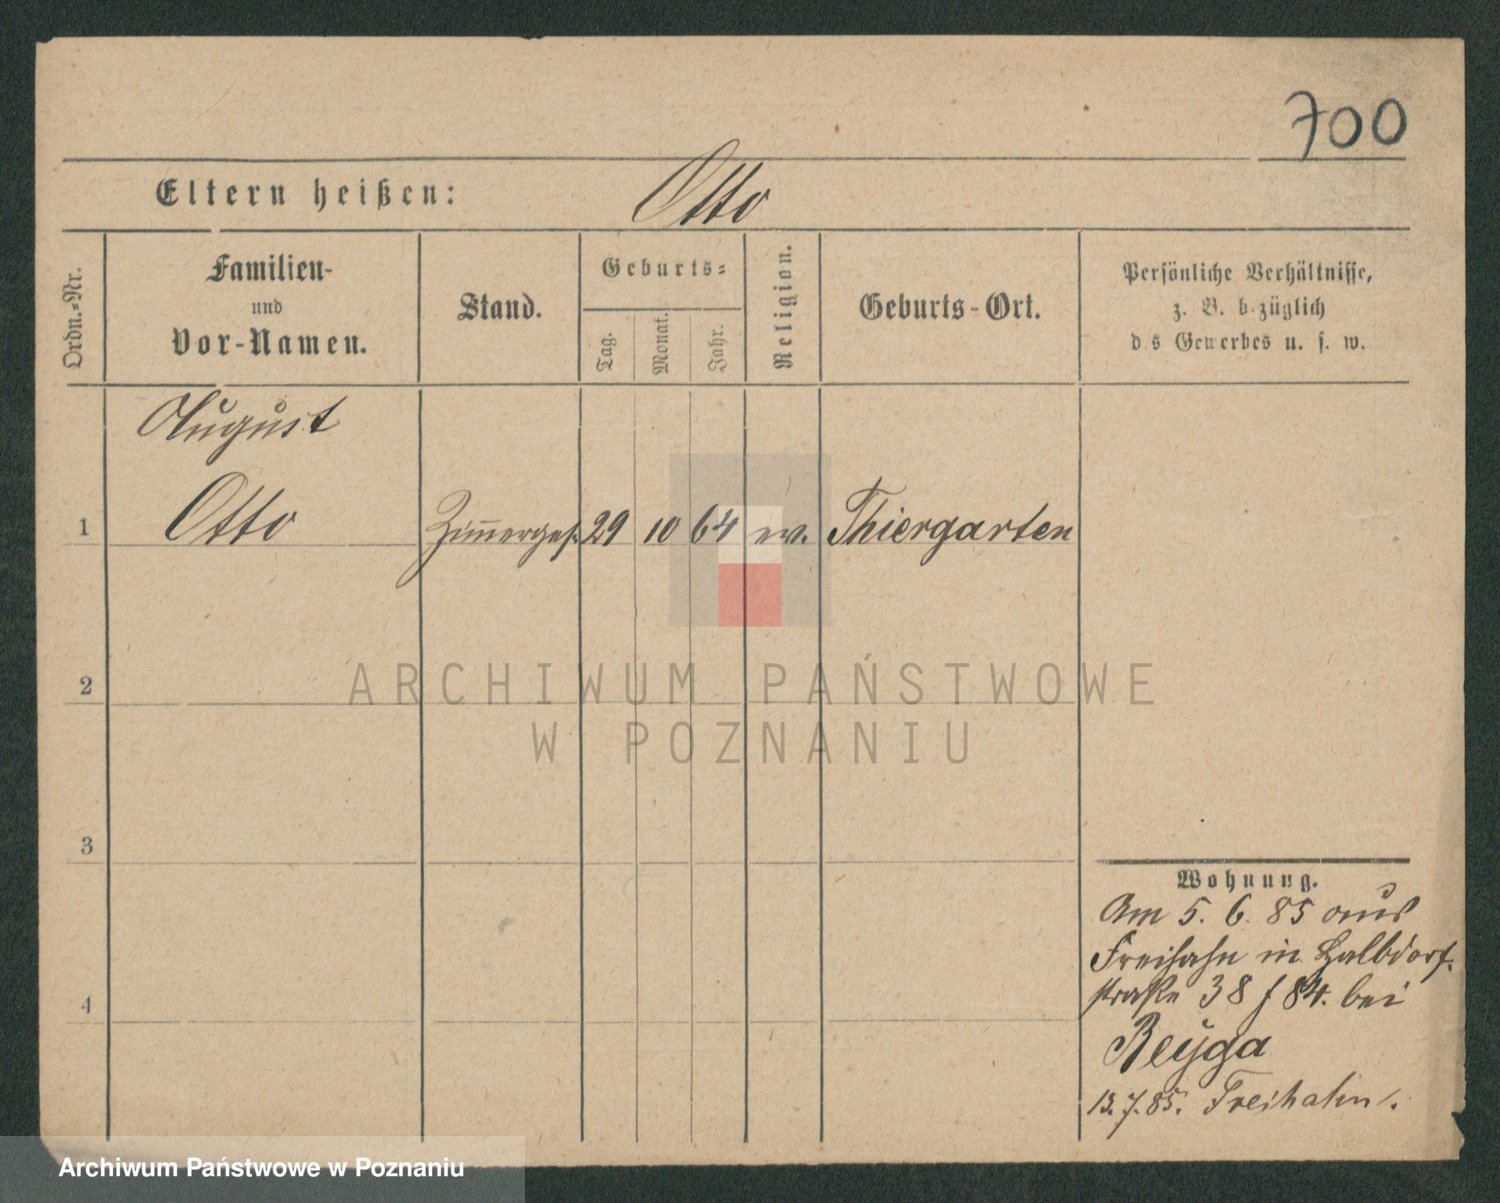 700
Eltern heißen: Otto
Ordn.-Nr.
Familien-
und
Vor-Namen.
Stand.
Geburts-
Tag.
Monat.
Jahr.
Religion.
Geburts-Ort.
Persönliche Verhältnisse,
z. B. bezüglich
des Gewerbes u. s. w.
August
1 Otto Zim̄erges. 29 10 64 ev. Thiergarten
2
3
4
ARCHIWUM PAŃSTWOWE
W POZNANIU
Wohnung.
Am 5. 6. 85 aus
Freihahn in Halbdorf-
straße 38 / 84. bei
Reyga
13. 7. 85. Freihahn.
Archiwum Państwowe w Poznaniu